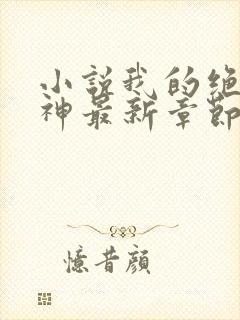 小說我的絕
神最新章節
憶昔顏